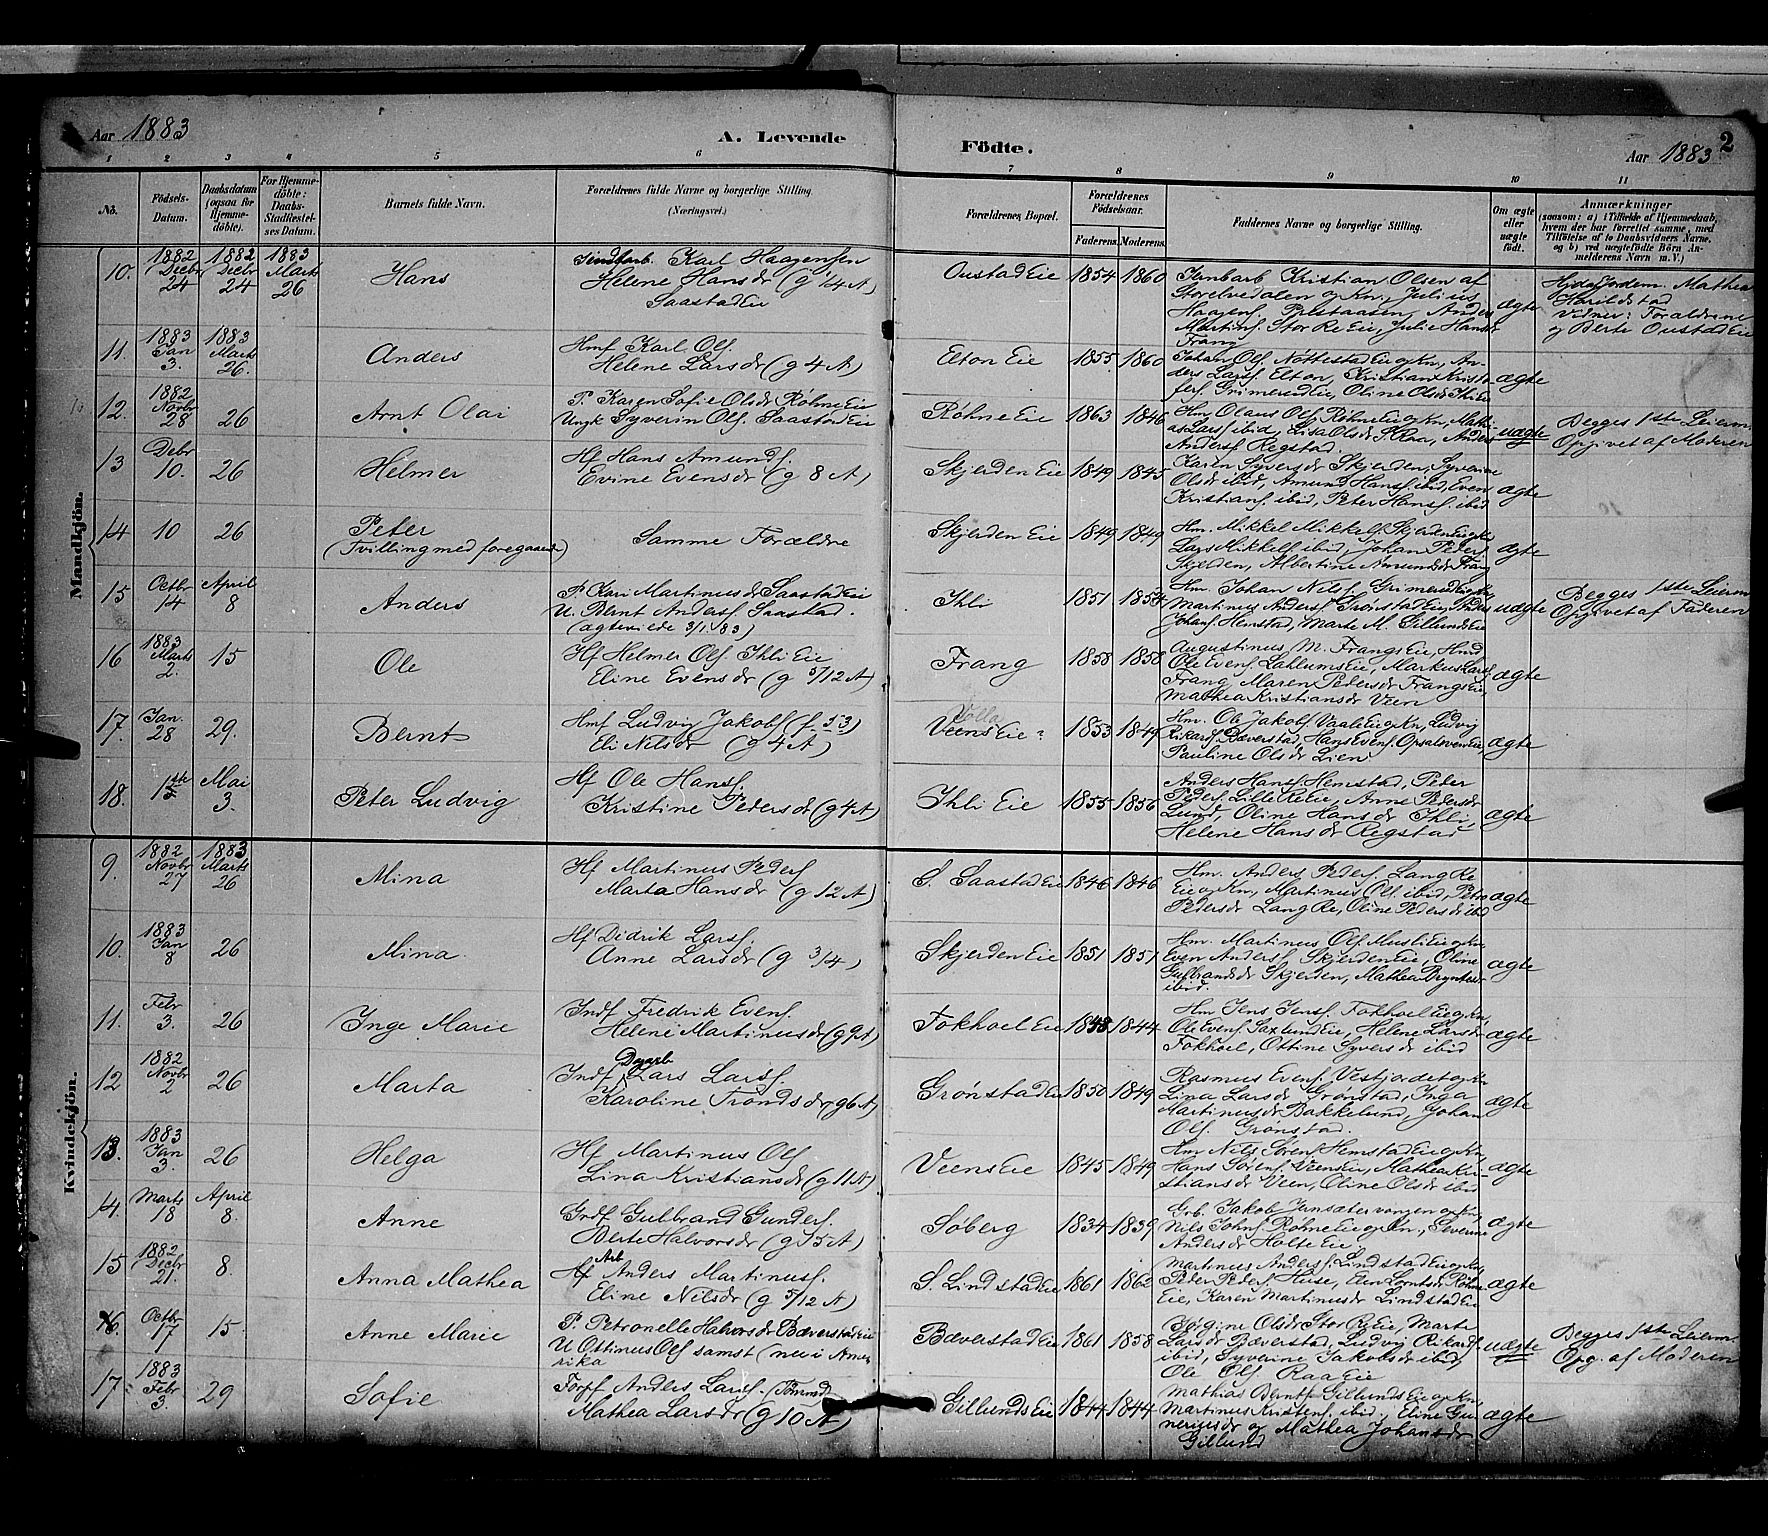 Aar 1883
A. Levende
Födte.
Aar 1883
2
1 2 3 4 5 6 7 8 9 10 11
No.
Födsels-Datum.
Daabsdatum (ogsaa for Hjemmedöbte).
For Hjemmedöbte: Daabs-Stadfestelses Datum.
Barnets fulde Navn.
Forældrenes fulde Navne og borgerlige Stilling
(Næringsvei.)
Forældrenes Bopæl.
Forældrenes Födselsaar.
Faderens. Moderens.
Faddernes Navne og borgerlige Stilling.
Om ægte eller uægte födt.
Anmærkninger
(saasom: a) i Tilfælde af Hjemmedaab,
hvem der har forrettet samme, med
Tilföielse af to Daabsvidners Navne,
og b) ved uægtefödte Börn Anmelderens Navn m. V.)
Mandkjön.
10. 1882 Decbr 24 1882 Decbr 24 1883 Marts 26 Hans
Karl Haagensen
Helene Hansdr (g 1/4 A)
Saastad Eie
Oustad Eie 1854 1860
Jernbarb Kristian Olsen af
Storelvedalen og Kn, Julius
Haagens. Prestaasen, Anders
Martins. Stor Re Eie, Julie Hansdr
Frang
ægte
Hjdø Jordem. Mathea
Harildstad
Vidner: Forældrene
og Berte Oustad Eie
11. 1883 Jan 3. 1883 Marts 26. Anders
Hmf Karl Ols.
Helene Larsdr (g 4 A)
Elton Eie 1855. 1860
Johan Ols. Nottestad Eie og Kn, Anders
Lars. Elton, Kristian Kristofers.
Grimerud Eie, Oline Olsdr Ski Eie
ægte
12. 1882 Novbr 28 26 Arnt Olai
P. Karen Sofie Olsdr Røhne Eie
Ungk Syverin Ols. Saastad Eie
Røhne Eie 1863 1846
Hm Olaus Ols. Røhne Eie og Kn, Mathias
Lars. ibid, Lisa Olsdr S. Raa, Anders
Anders. Regstad.
uægte
Begges 1ste Leierm.
Opgivet af Moderen
13 Debr 10. 26 Helmer
Hf Hans Amunds.
Evine Evensdr (g 8 A)
Skjerden Eie 1849 1845
Karen Syversdr Skjerden, Syverine
Olsdr ibid, Amund Hans. ibid, Even
Kristians. ibid, Peter Hans. ibid
ægte
14 10 26 Peter
(Tvilling med foregaaende)
Samme Forældre
Skjerden Eie 1849 1849
Hm. Mikkel Mikkels. Skjerden Eie og Kn,
Lars Mikkels. ibid, Johan Peders.
Skjerden, Albertine Amundsdr Frang
ægte
15 Octbr 14 April 8 Anders
P. Kari Martinusdr Saastad Eie
U. Bent Anders. Saastad.
(ægteviede 3/1. 83)
Ihli 1851 1854
Hm. Johan Nils. Grimerud Eie og Kn,
Martinus Anders. Grønstad Eie, Anders
Johans. Hemstad, Marte M. Gillunds Eie
uægte
Begges 1ste Leierm
Opgivet af Faderen
16 1883 Marts 2. 15 Ole
Hf Helmer Ols. Ihli Eie
Eline Evensdr (g 5/12 A)
Frang 1858 1858
Augustinus M. Frangs Eie, Hmd
Ole Evens. Lahlums Eie, Markus Lars.
Frang Maren Pedersdr Frangs Eie
Mathea Kristiansdr Veen
ægte
17. Jan. 28 29. Bernt
Hmf Ludvig Jakobs. (f. 53)
Eli Nilsdr (g 4 A)
Veens Eie: 1853 1849
Hm. Ole Jakobs. Vaale Eie og Kn, Ludvig
Rikards. Bæverstad, Hans Evens. Opsalsveen Eie
Pauline Olsdr Lien
ægte
18. 15de Mai 3. Peter Ludvig
Hf Ole Hans.
Kristine Pedersdr (g 4 A)
Ihli Eie 1855 1856
Anders Hans. Hemstad, Peder
Peders. Lille Re Eie, Anne Pedersdr
Lund, Oline Hansdr Ihli,
Helene Hansdr Regstad
ægte
Kvindekjön.
9. 1882 Novbr 27 1883 Marts 26 Mina
Hf Martinus Peders.
Marta Hansdr (g 12 A)
S. Saastad Eie 1846 1846
Hm. Anders Peders. Lang Re
Eie og Kn, Martinus Ols. ibid, Petra
Pedersdr Lang Re, Oline Pedersdr ibid
ægte
10. 1883 Jan 8 26 Mina
Hf Didrik Lars.
Anne Larsdr (g 3/4)
Skjerden Eie 1851 1851
Hm. Martinus Ols. Musli Eie og Kn,
Even Anders. Skjerden Eie, Oline
Gulbrandsdr Skjerden, Mathea Brynhildsdr
ibid.
ægte
11. Febr 3. 26 Inge Marie
Indf Fredrik Evens.
Helene Martinusdr (g 9 A)
Fokhoel Eie 1843 1844
Hm Jens Jens. Fokhoel Eie og Kn,
Ole Evens. Saxlund Eie, Helene Larsdr
Fokhoel, Ottine Syversdr ibid
ægte
12 1882 Novbr 2 26 Marta
Indf Dagarb Lars Lars.
Karoline Trondsdr (g 6 A)
Grønstad Eie 1850 1849
Rasmus Evens. Vestjordet og Kn
Lina Larsdr Grønstad, Inga
Martinusdr Bakkelund, Johan
Ols. Grønstad.
ægte
13. 1883 Jan 3. 26 Helga
Hf Martinus Ols
Lina Kristiansdr (g 11 A)
Veens Eie 1845 1849
Hm Nils Sørens. Hemstad Eie og Kn,
Hans Sørens. Veens Eie, Mathea Kristiansdr
Veen, Oline Olsdr ibid
ægte
14. Marts 18 April 8. Anne
Grdf Gulbrand Gunders.
Berte Halvorsdr (g 15 A)
Søberg 1834 1839
Grb. Jakob Jensætervangen og Kn,
Nils Johns. Røhne Eie og Kn, Severine
Andersdr Holte Eie.
ægte
15 1882 Decbr 21. 8. Anna Mathea
Hf Arb Anders Martinus.
Eline Nilsdr (g 5/12 A)
S. Lindstad Eie 1861 1862
Martinus Anders. Lindstad Eie og Kn,
Peder Peders. Huse, Even Lorntsdr Røhne
Eie, Karen Martinusdr Lindstad Eie
ægte
16. Octbr 17 15. Anne Marie
P. Petronelle Halvorsdr Bæverstad Eie
U Ottinus Ols samst (nu i Amerika
Bæverstad Eie 1861 1858
Olsdr Stor Re Eie, Marte
Larsdr Bæverstad, Ludvig Rikards.
ibid, Syverine Jakobsdr ibid,
Ole Ols. Raa Eie
uægte
Begges 1ste Leierm.
Opg. af Moderen
17. 1883 Febr 3. 29 Sofie
Torpf Anders Lars. (Tømmd)
Mathea Larsdr (g 10 A)
Gillunds Eie 1844 1844
Mathias Bernts. Gillunds Eie og Kn,
Martinus Kristens. ibid, Eline Gunneriusdr
og Mathea Johansdr
Gillund
ægte